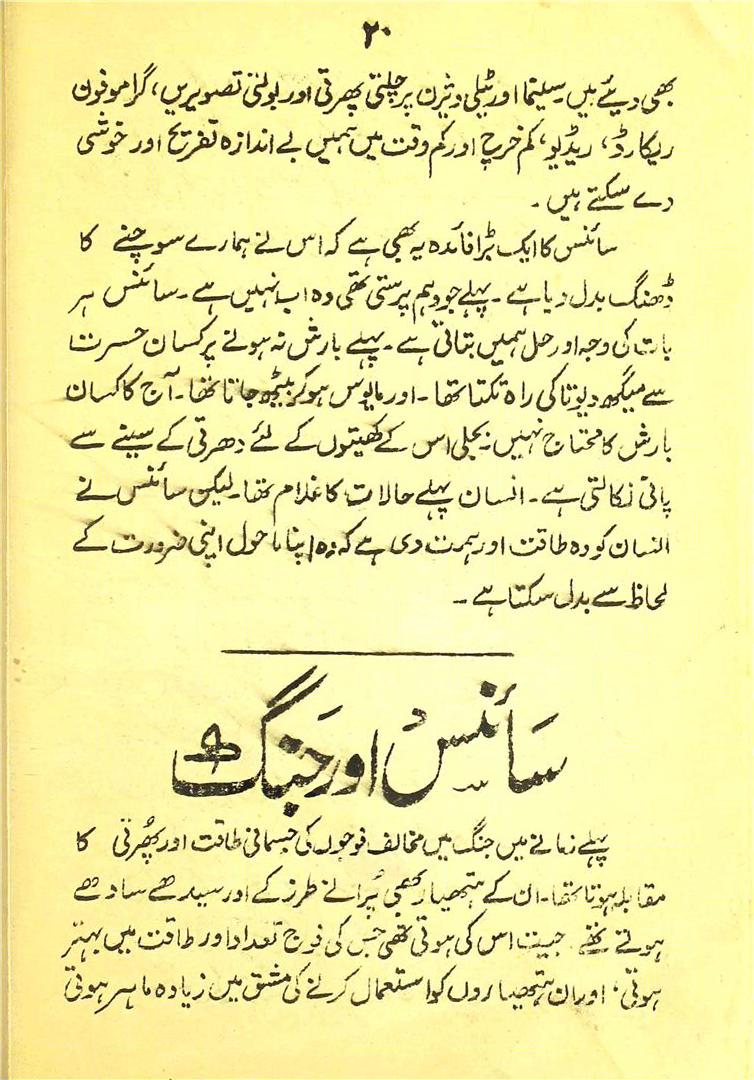 ۲۰
بھی دیئے ہیں۔ سینما اور ٹیلی ویژن پر چلتی پھرتی اور بولتی تصویریں، گراموفون
ریکارڈ، ریڈیو، کم خرچ اور کم وقت میں ہمیں بے اندازہ تفریح اور خوشی
دے سکتے ہیں۔
سائنس کا ایک بڑا فائدہ یہ بھی ہے کہ اس نے ہمارے سوچنے کا
ڈھنگ بدل دیا ہے۔ پہلے جو وہم پرستی تھی وہ اب نہیں ہے۔ سائنس ہر
بات کی وجہ اور حل ہمیں بتاتی ہے۔ پہلے بارش نہ ہونے پر کسان حسرت
سے میگھ دیوتا کی راہ تکتا تھا۔ اور مایوس ہو کر بیٹھ جاتا تھا۔ آج کا کسان
بارش کا محتاج نہیں۔ بجلی اس کے کھیتوں کے لئے دھرتی کے سینے سے
پانی نکالتی ہے۔ انسان پہلے حالات کا غلام تھا۔ لیکن سائنس نے
انسان کو وہ طاقت اور ہمت دی ہے کہ وہ اپنا ماحول اپنی ضرورت کے
لحاظ سے بدل سکتا ہے۔
سائنس اور جنگ
پہلے زمانے میں جنگ میں مخالف فوجوں کی جسمانی طاقت اور پھُرتی کا
مقابلہ ہوتا تھا۔ ان کے ہتھیار بھی پُرانے طرز کے اور سیدھے سادھے
ہوتے تھے۔ جیت اس کی ہوتی تھی جس کی فوج تعداد اور طاقت میں بہتر
ہوتی، اور ان ہتھیاروں کو استعمال کرنے کی مشق میں زیادہ ماہر ہوتی